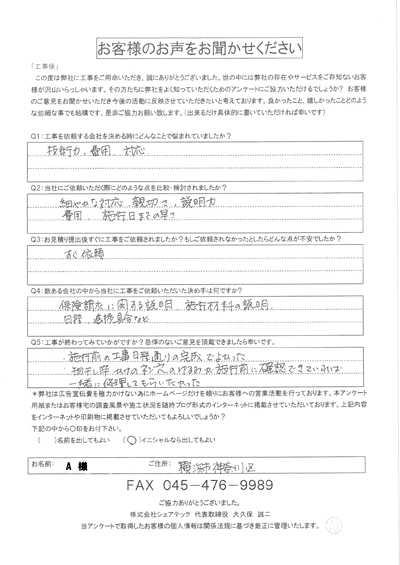 お客様のお声をお聞かせください
「工事後」
この度は弊社に工事をご用命いただき、誠にありがとうございました。世の中には弊社の存在やサービスをご存知ないお客
様が沢山いらっしゃいます。その方たちに弊社をよく知っていただくためのアンケートにご協力いただけるでしょうか? お客様
のご意見をお聞かせいただき今後の活動に反映させていただきたいと考えております。良かったこと、嬉しかったことどのよう
な些細な事でも結構です。是非ご協力お願い致します。(出来るだけ具体的に書いていただければ幸いです)
Q1:工事を依頼する会社を決める時にどんなことで悩まれていましたか?
技術力、費用、対応
Q2:当社にご依頼いただく際にどのような点を比較・検討されましたか?
細やかな対応、親切さ、説明力
費用、施行日までの早さ
Q3:お見積り提出後すぐに工事をご依頼されましたか?もしご依頼されなかったとしたらどんな点が不安でしたか?
すぐ依頼
Q4:数ある会社の中から当社に工事をご依頼いただいた決め手は何ですか?
保険請求に関する説明、施行材料の説明
日程、進捗具合など
Q5:工事が終わってみていかがですか?忌憚のないご意見を頂戴できましたら幸いです。
・施行前の工事日程通りの完成でよかった
・物干し竿かけのネジ穴の
施行前に確認できていれば
一緒に修理してもらいたかった
*弊社は広告宣伝費を極力かけない為にホームページだけを頼りにお客様への営業活動を行っております。本アンケート
用紙またはお客様宅の調査風景や施工状況を随時ブログ形式のインターネットに掲載させていただいております。上記内容
をインターネットや印刷物に掲載させていただいてもよろしいでしょうか?
下記の中から○印をお付下さい。
( )名前を出してもよい (○)イニシャルなら出してもよい
お名前: A 様 ご住所: 横浜市神奈川区
FAX 045-476-9989
ご協力ありがとうございました。
株式会社シェアテック 代表取締役 大久保 誠二
当アンケートで取得したお客様の個人情報は関係法規に基づき厳正に管理いたします。